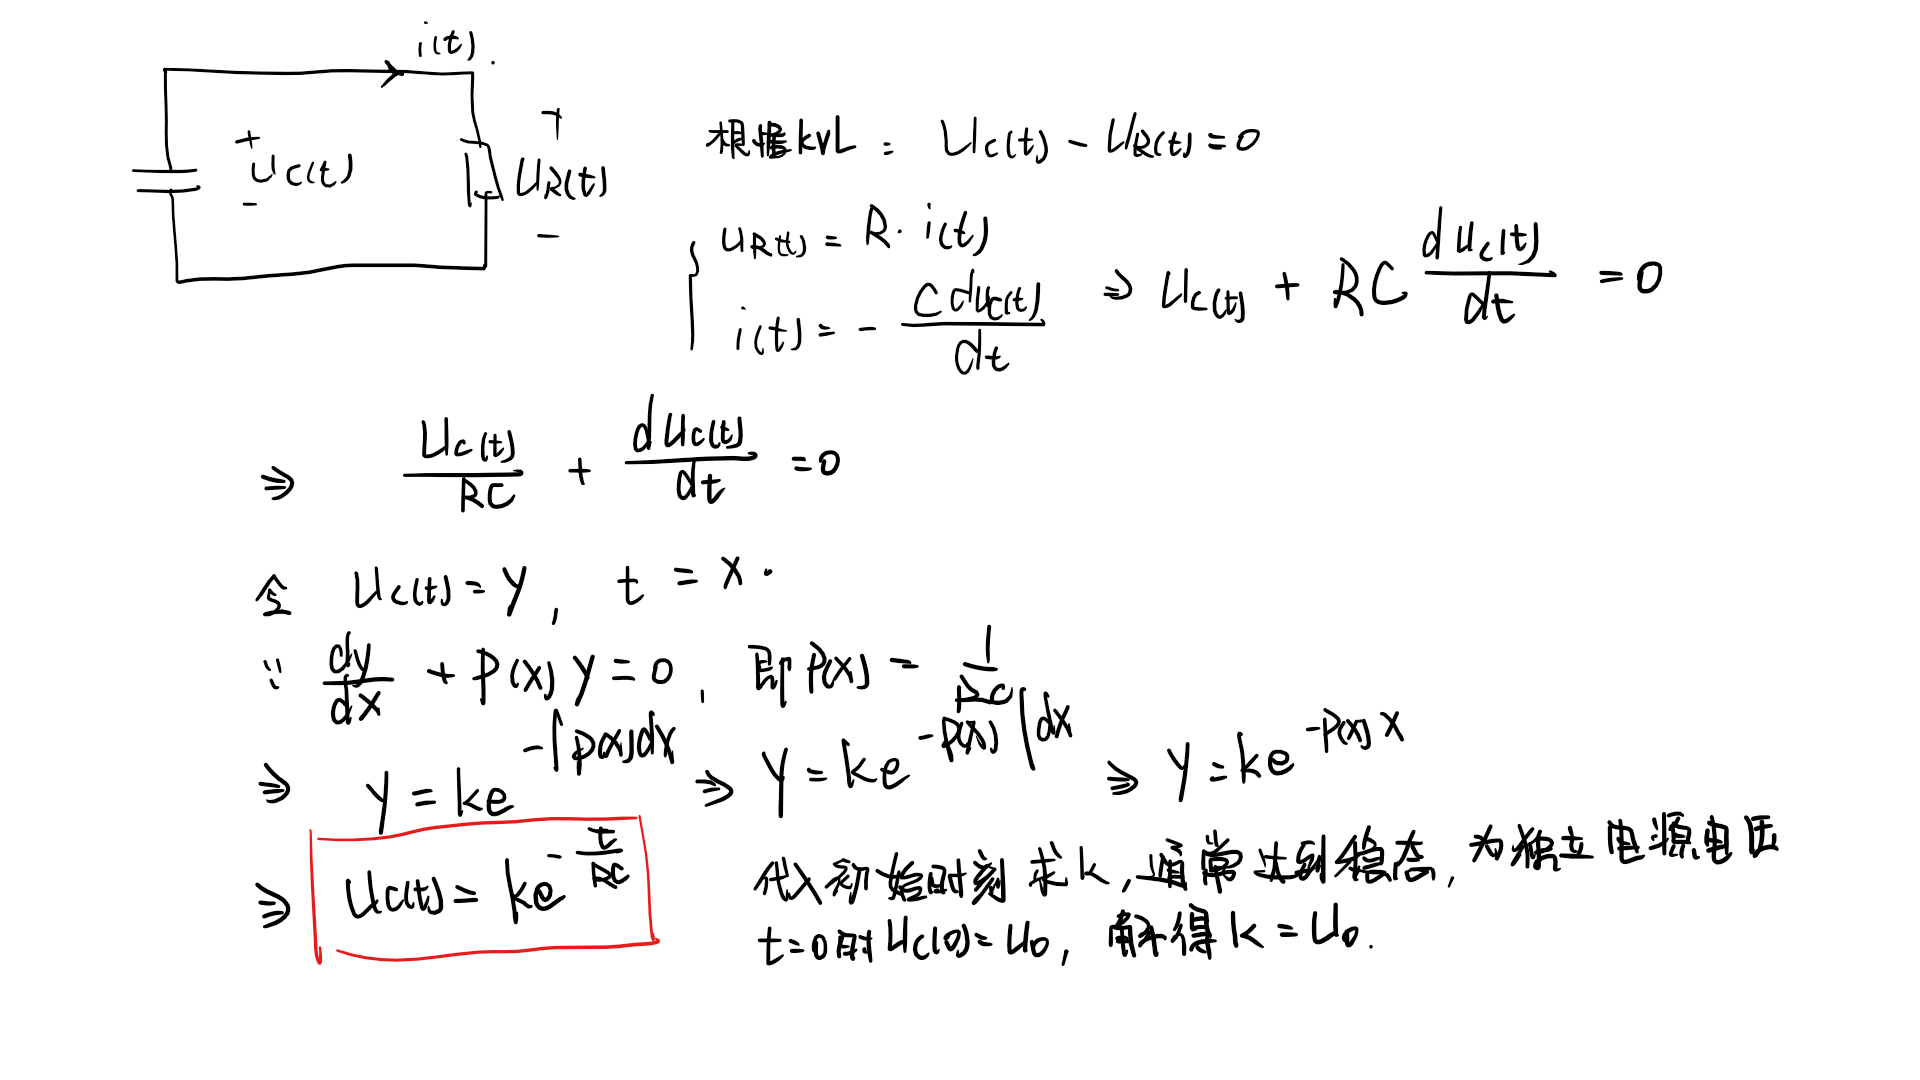 i(t).
+ uc(t) -
+ UR(t) -
根据KVL: Uc(t) - UR(t) = 0
{ uR(t) = R · i(t)
i(t) = - C duc(t)/dt ⇒ Uc(t) + RC duc(t)/dt = 0
⇒ Uc(t)/RC + duc(t)/dt = 0
令 Uc(t) = y, t = x.
∵ dy/dx + P(x) y = 0, 即 P(x) = 1/RC
⇒ y = ke^(-∫P(x)dx) ⇒ y = ke^(-P(x)∫dx) ⇒ y = ke^(-P(x) x)
⇒ Uc(t) = ke^(-t/RC)
代入初始时刻求k, 通常达到稳态, 为独立电源电压
t=0时 Uc(0) = U0, 解得 k = U0.